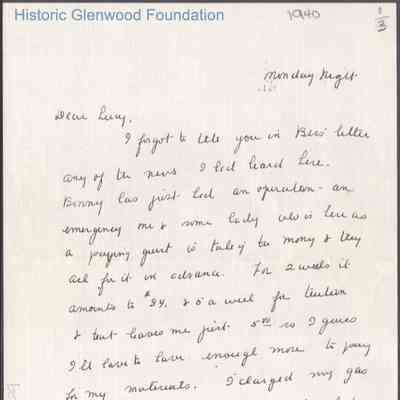 Historic Glenwood Foundation
1940
1/3
Monday Night
Dear Lucy,
I forgot to tell you in Bess' letter
any of the news I had heard here.
Binny has just had an operation - an
emergency one & some lady who is here as
a paying guest is taking the money & they
ask for it in advance. For 2 weeks it
amounts to $24. & 5 a week for tuition
& that leaves me just 5.00 so I guess
I'll have to have enough more to pay
for my materials. I charged my gas